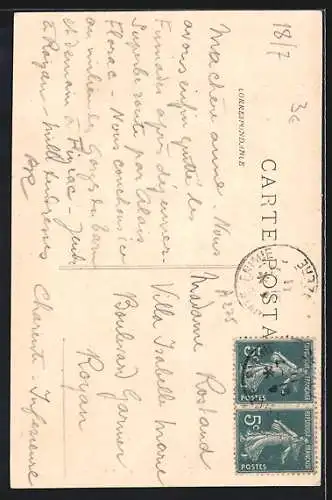 CARTE POSTALE
CORRESPONDANCE
18/7
36
Ma chère amie. Nous
avons enfin quitté les
Fumades après déjeuner.
Superbe route par Alais
Florac - Nous couchons ici
au milieu des Gorges du Tarn
et demain à
à Royan - mille tendresses
Madame Rostand
Villa Isabelle Marie
Boulevard Garnier
Royan
Charente-Inférieure
A 275
LOZERE
5c
POSTES
REPUBLIQUE FRANÇAISE
5c
POSTES
REPUBLIQUE FRANÇAISE